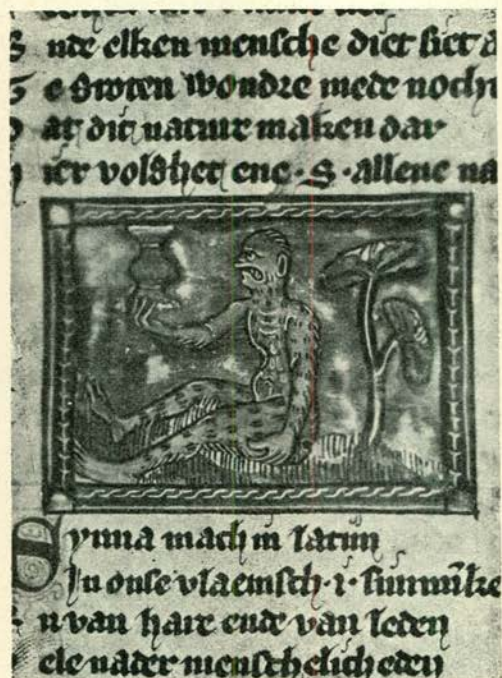 nde elken mensche diet siet
e groten wondre mede noch
at dit nature maken dar
ier volghet ene · S · allene na
Symia mach in latijn
In onse vlaemsch · i · simmīke
n van hare ende van leden
ele nader menschelicheden